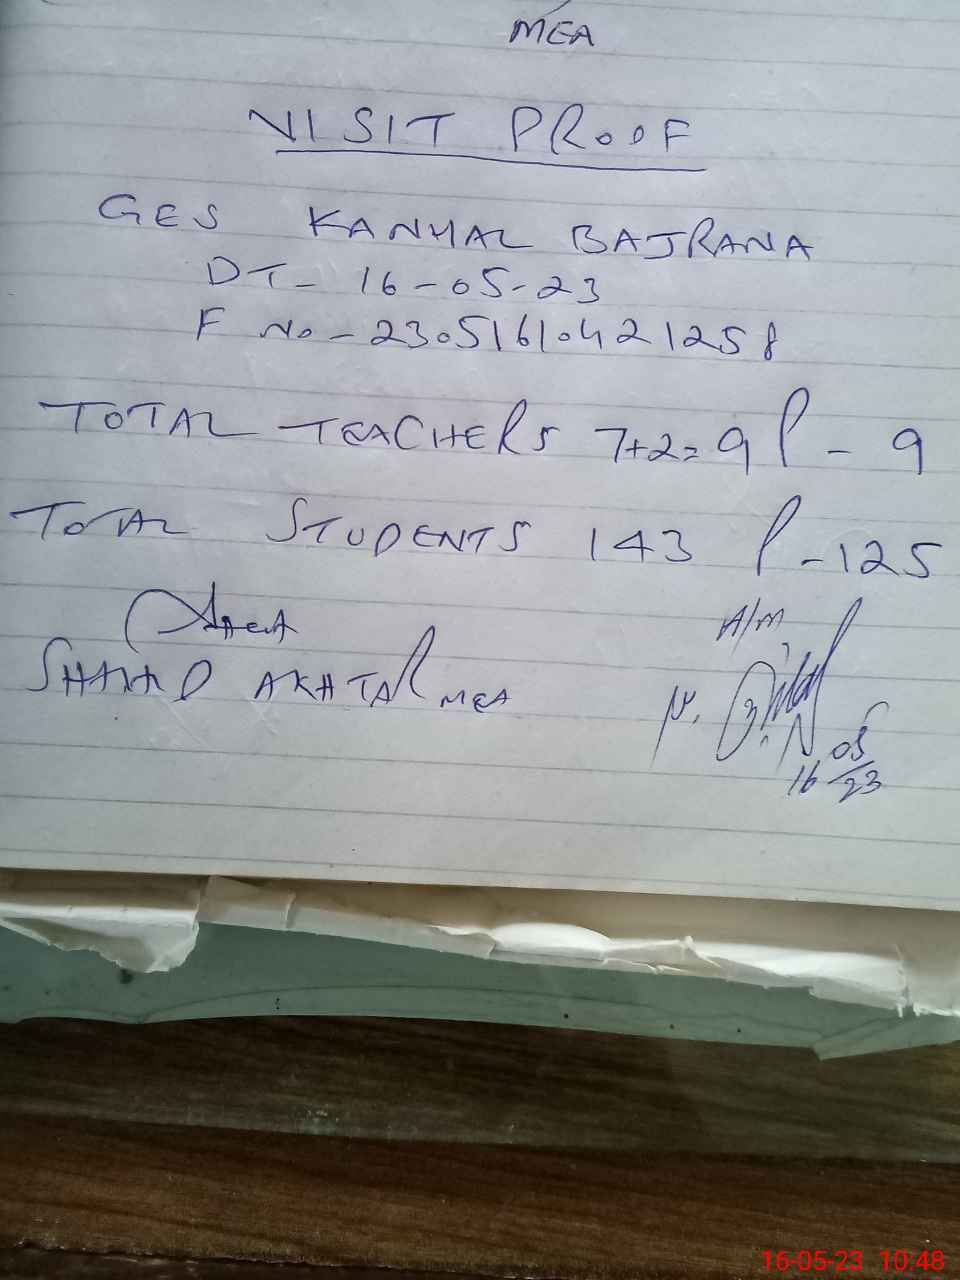 MEA
VISIT PROOF
GES KANYAL BAJRANA
DT- 16-05-23
F No - 23051610421258
TOTAL TEACHERS 7+2=9 P - 9
TOTAL STUDENTS 143 P - 125
A/m
AKHTAR MEA
16 05/23
16-05-23 10:48